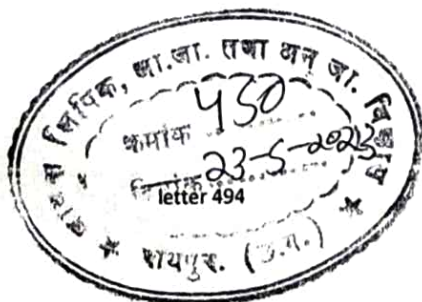 आ.जा. तथा अनु.जा. विभाग
क्रमांक 430
दिनांक 23-5-2023
letter 494
★ रायपुर. (छ.ग.) ★